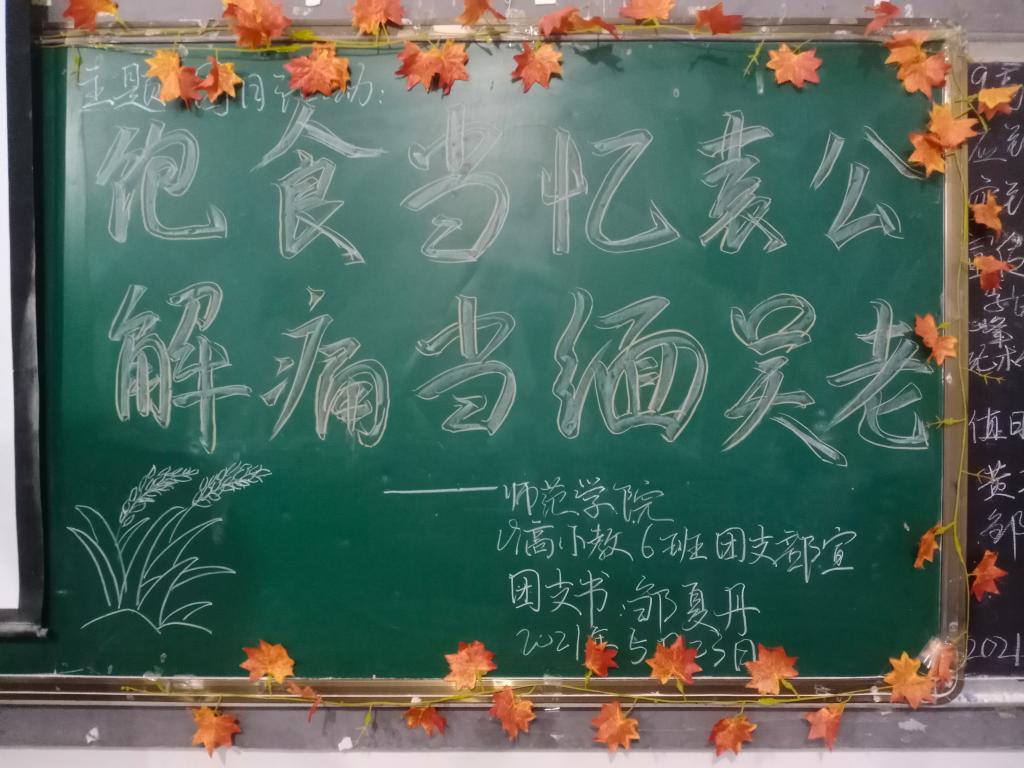 主题团日活动：
饱食当忆袁公
解痛当缅吴老
——师范学院
小高小教6班团支部宣
团支书：邹夏丹
2021年5月23日
值日
黄
邹
2021